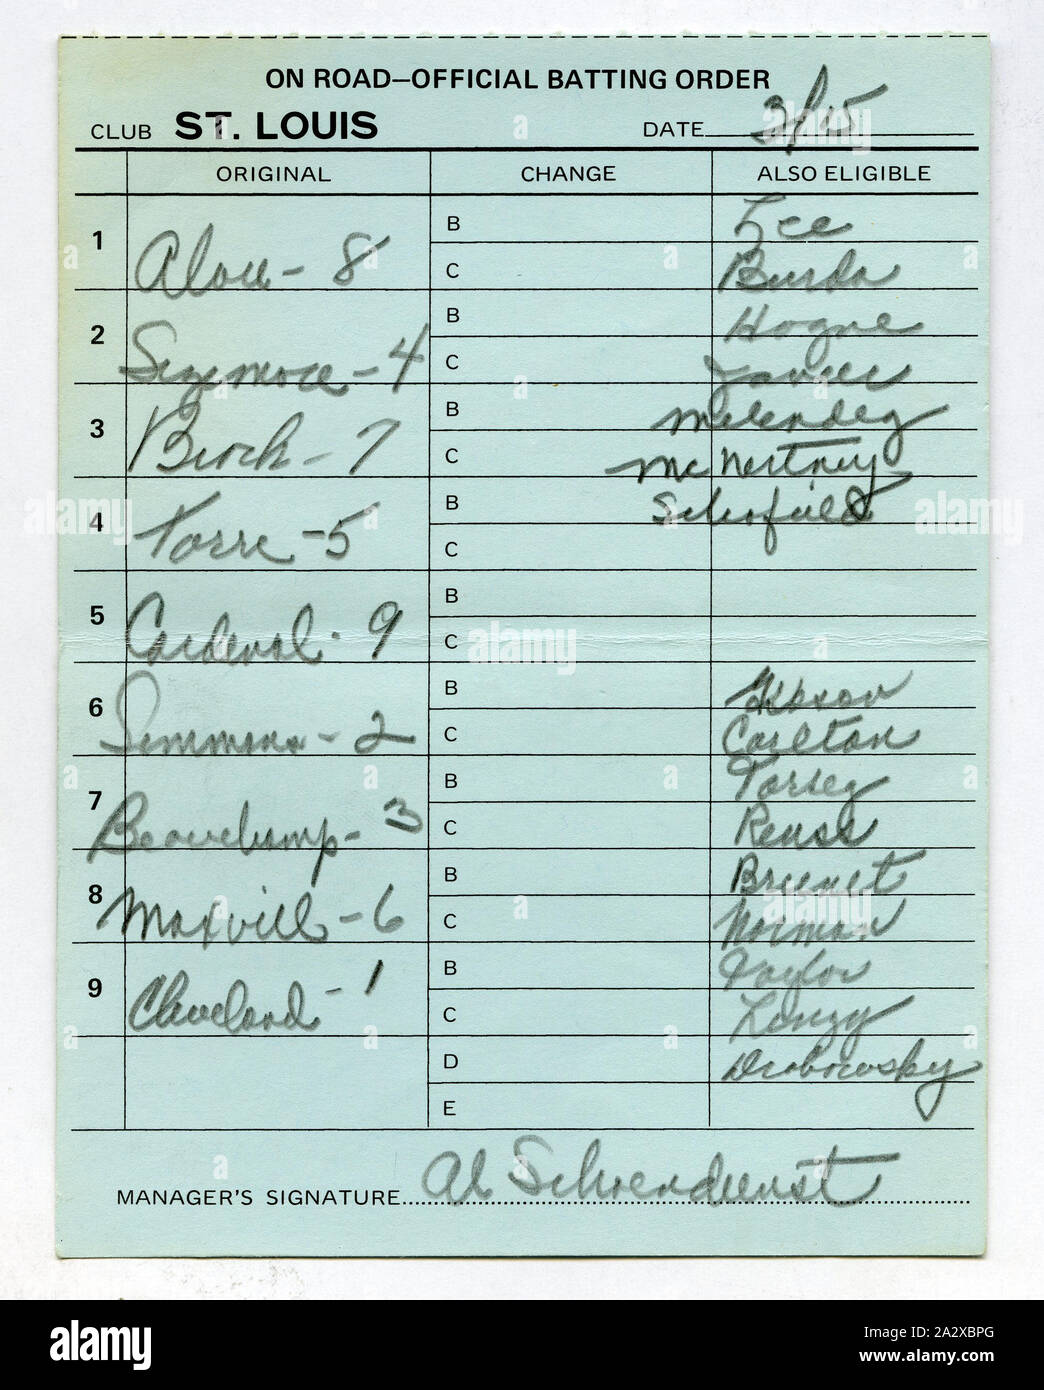 ON ROAD—OFFICIAL BATTING ORDER
CLUB ST. LOUIS DATE 3/15
ORIGINAL CHANGE ALSO ELIGIBLE
1 Alou - 8 B Lee
C Burda
2 Sizemore - 4 B Hague
C Javier
3 Brock - 7 B Melendez
C McNertney
4 Torre - 5 B Schofield
C
5 Cardenal - 9 B
C
6 Simmons - 2 B Gibson
C Carlton
7 Beauchamp - 3 B Torrez
C Reuss
8 Maxvill - 6 B Brunet
C Norman
9 Cleveland - 1 B Taylor
C Linzy
D Drabowsky
E
MANAGER'S SIGNATURE Al Schoendienst
alamy
alamy
Image ID: 2A2XBPG
www.alamy.com